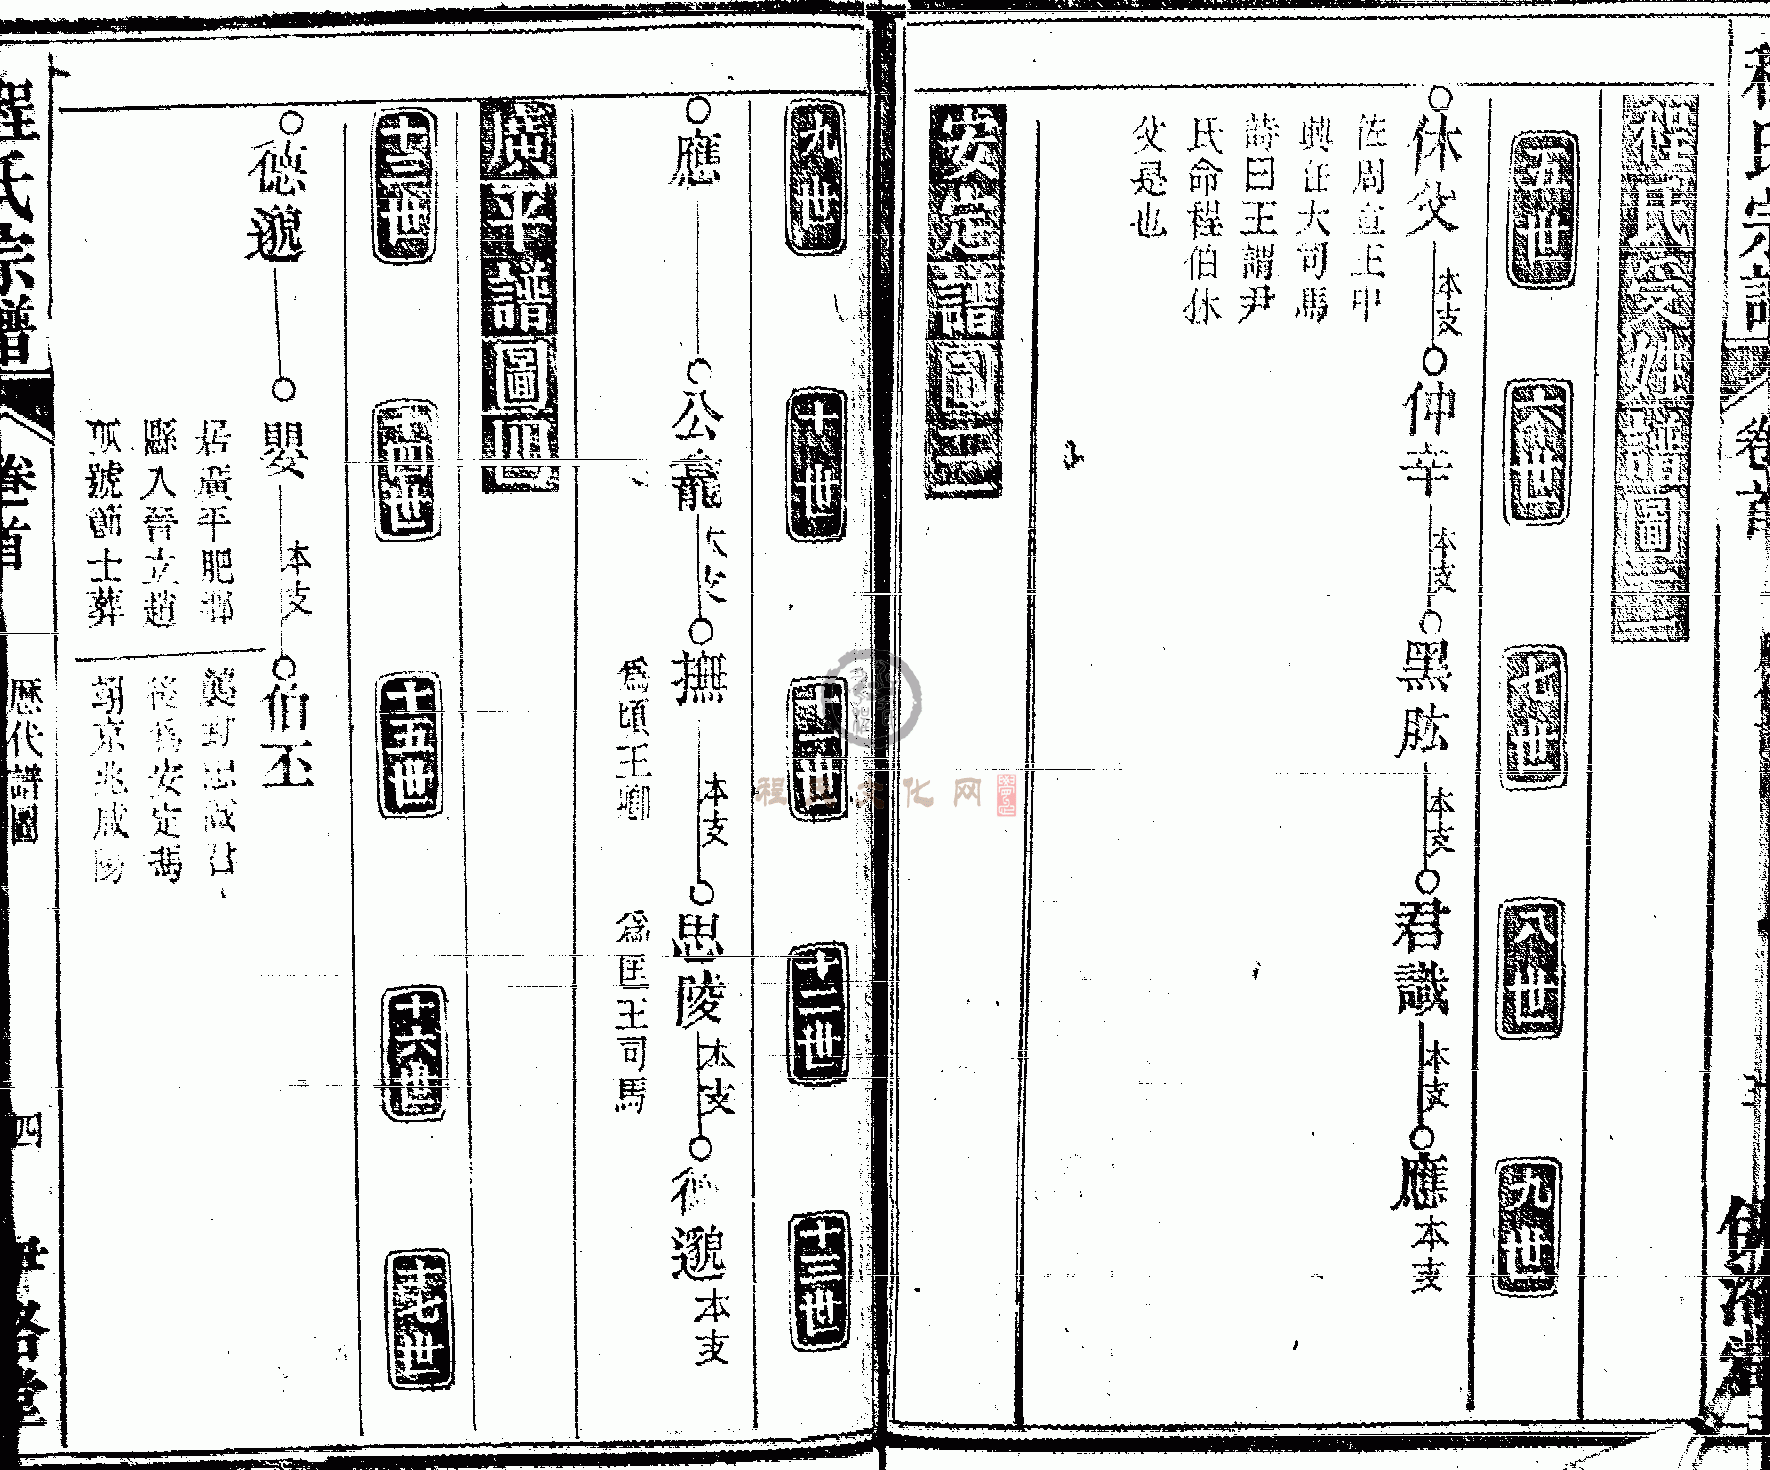 程氏受姓譜圖二
五世
六世
七世
八世
九世
休父
本支
仲辛
本支
黑肱
本支
君識
本支
應
本支
佐周宣王中
興任大司馬
詩曰王謂尹
氏命程伯休
父是也
安定譜圖三
九世
十世
十一世
十二世
十三世
應
公竈
撫
本支
思陵
本支
德邈
本支
為頃王卿
為匡王司馬
廣平譜圖四
十三世
十四世
十五世
十六世
十七世
德邈
嬰
本支
伯丕
居廣平肥鄉
縣入晉立趙
孤號節士葬
後為安定馮
朝京兆咸陽
程氏宗譜
卷首
歷代譜圖
四
程
化
网